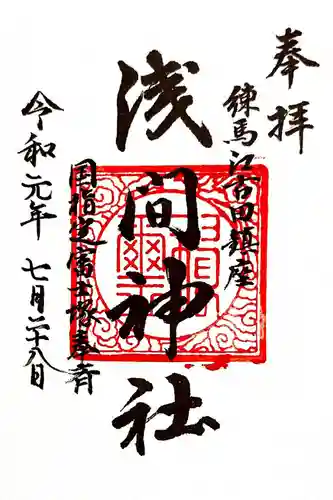 奉拝
練馬江古田鎮座
浅間神社
国指定富士塚
令和元年 七月二十八日